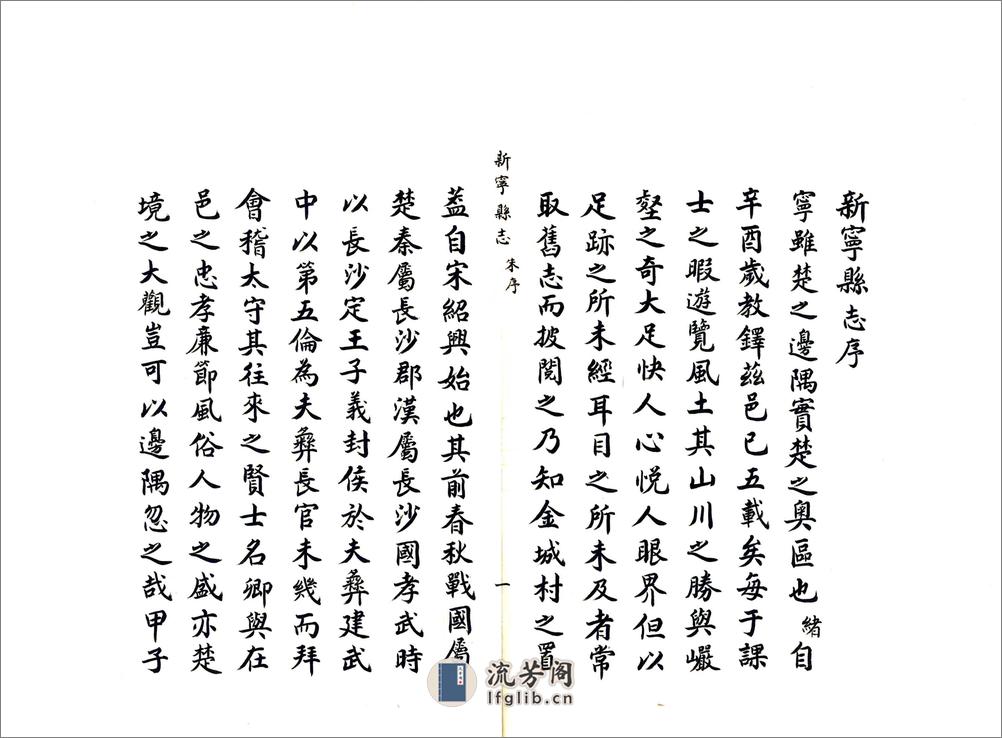 新寧縣志序
寧雖楚之邊隅實楚之奧區也緒自
辛酉歲教鐸茲邑已五載矣每于課
士之暇遊覽風土其山川之勝與巗
壑之奇大足快人心悅人眼界但以
足跡之所未經耳目之所未及者常
取舊志而披閱之乃知金城村之置
新寧縣志
朱序
一
葢自宋紹興始也其前春秋戰國屬
楚秦屬長沙郡漢屬長沙國孝武時
以長沙定王子義封侯於夫彝建武
中以第五倫為夫彝長官未幾而拜
會稽太守其往來之賢士名卿與在
邑之忠孝廉節風俗人物之盛亦楚
境之大觀豈可以邊隅忽之哉甲子
流芳阁
lfglib.cn